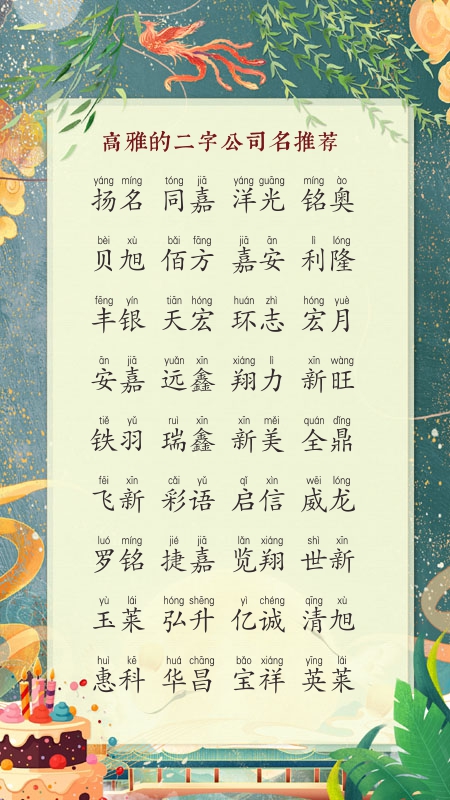 高雅的二字公司名推荐
yáng míng tóng jiā yáng guāng míng ào
扬名 同嘉 洋光 铭奥
bèi xù bǎi fāng jiā ān lì lóng
贝旭 佰方 嘉安 利隆
fēng yín tiān hóng huán zhì hóng yuè
丰银 天宏 环志 宏月
ān jiā yuǎn xīn xiáng lì xīn wàng
安嘉 远鑫 翔力 新旺
tiě yǔ ruì xīn xīn měi quán dǐng
铁羽 瑞鑫 新美 全鼎
fēi xīn cǎi yǔ qǐ xìn wēi lóng
飞新 彩语 启信 威龙
luó míng jié jiā lǎn xiáng shì xīn
罗铭 捷嘉 览翔 世新
yù lái hóng shēng yì chéng qīng xù
玉莱 弘升 亿诚 清旭
huì kē huá chāng bǎo xiáng yīng lái
惠科 华昌 宝祥 英莱